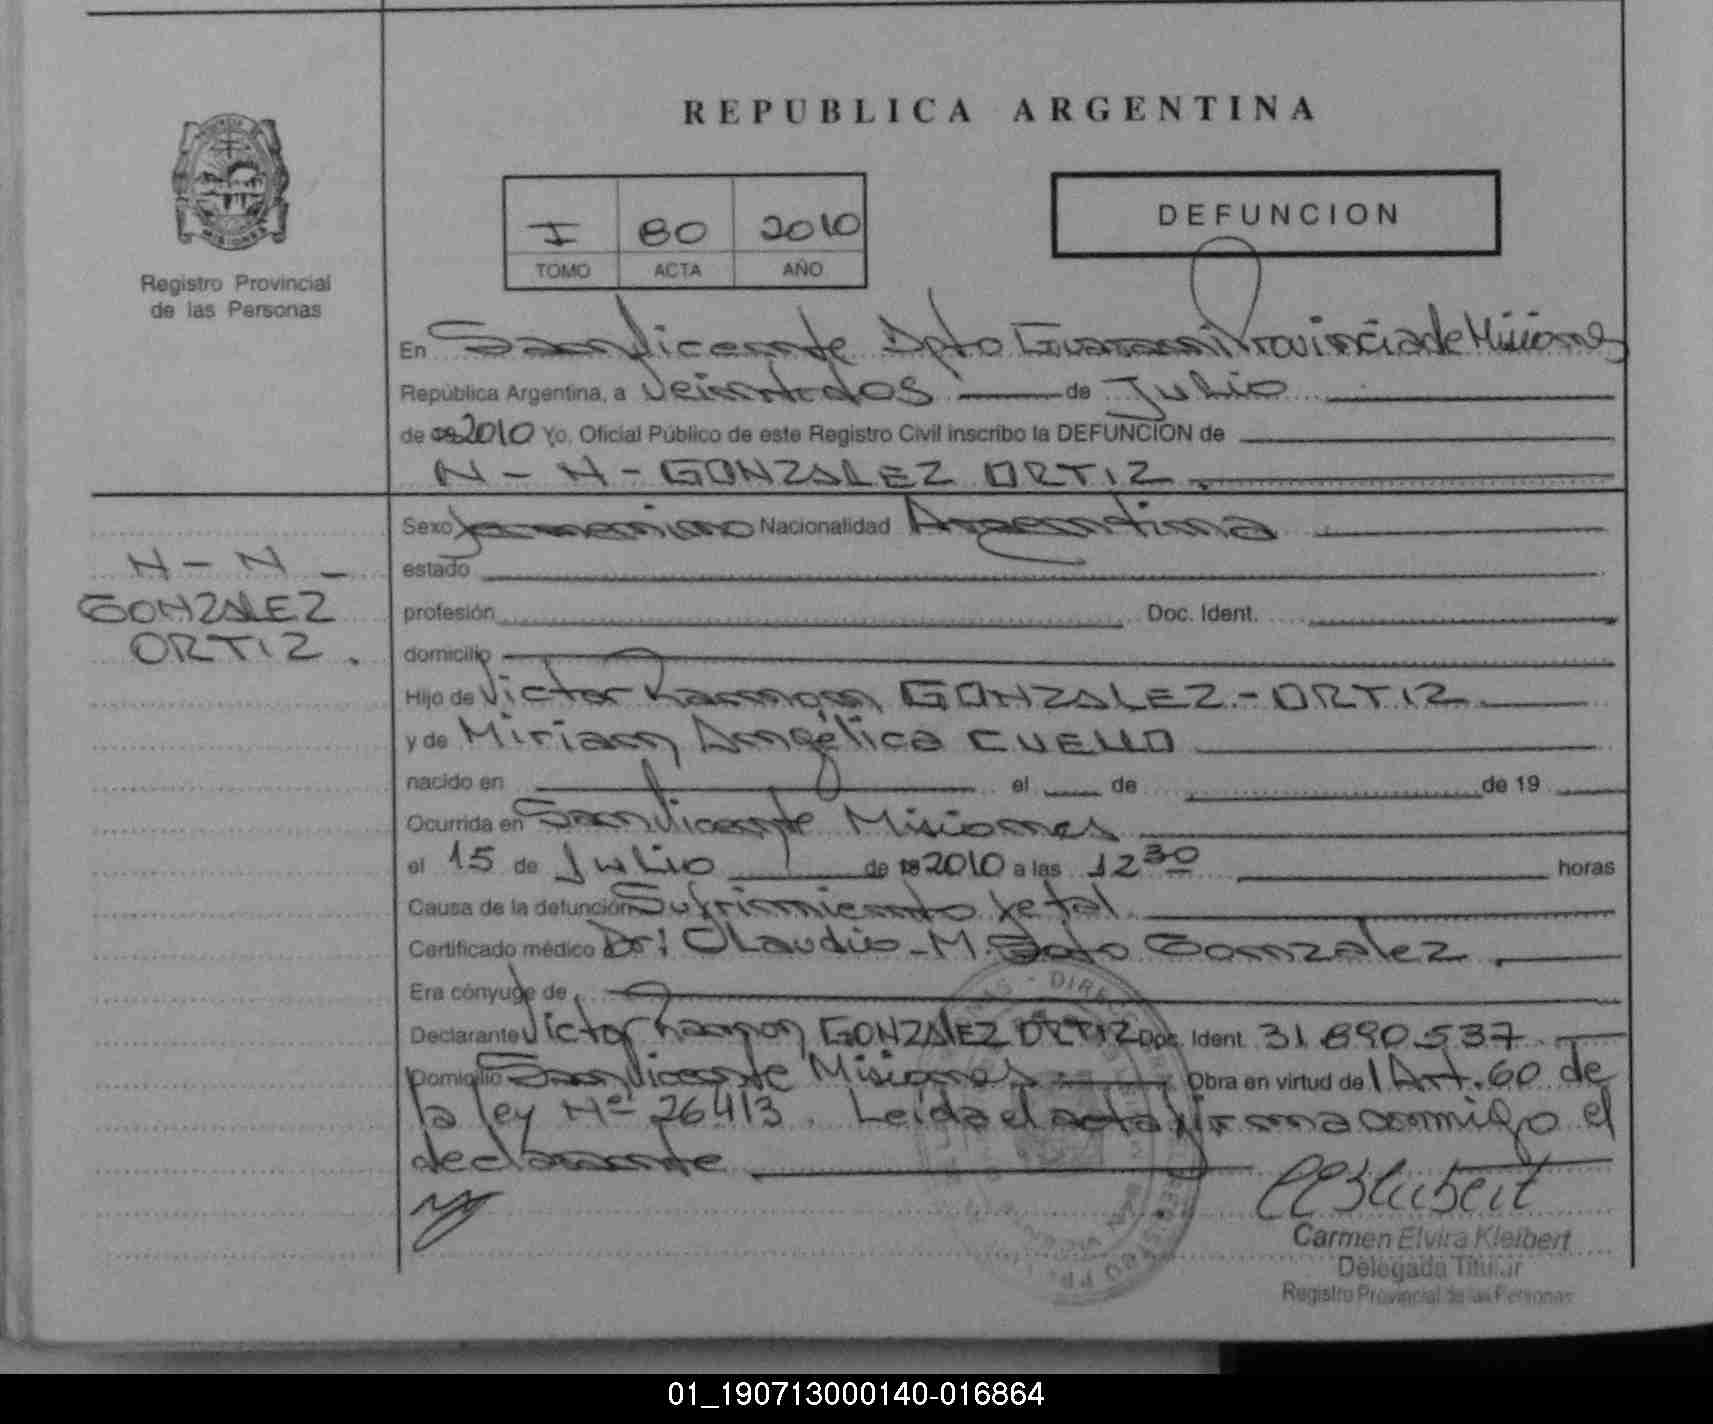 REPUBLICA ARGENTINA
I 80 2010
TOMO ACTA AÑO
DEFUNCION
Registro Provincial
de las Personas
En San Vicente Dpto Guarani Provincia de Misiones
República Argentina, a veintidos de Julio
de 2010 Yo, Oficial Público de este Registro Civil inscribo la DEFUNCION de
N - N - GONZALEZ ORTIZ
Sexo femenino Nacionalidad Argentina
N - N -
GONZALEZ
ORTIZ.
estado
profesión Doc. Ident.
domicilio
Hijo de Victor Ramon GONZALEZ - ORTIZ
y de Miriam Angélica CUELLO
nacido en el de de 19
Ocurrida en San Vicente Misiones
el 15 de Julio de 2010 a las 12 30 horas
Causa de la defunción Sufrimiento fetal
Certificado médico Dr: Claudio - M. Soto Gonzalez.
Era cónyuge de
Declarante Victor Ramon GONZALEZ ORTIZ Doc. Ident. 31.890.537
Domicilio San Vicente Misiones Obra en virtud del Art. 60 de
la ley Nº 26.413. Leida el acta firma conmigo el
declarante
Carmen Elvira Kleibert
Delegada Titular
Registro Provincial de las Personas
01_190713000140-016864